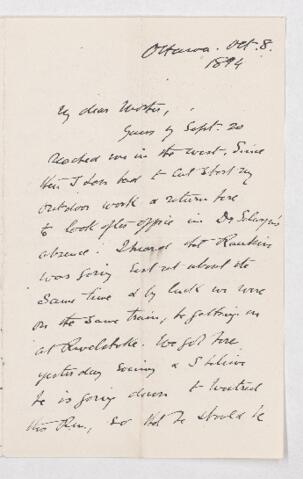 Ottawa. Oct. 8.
1894
My dear
Yours of Sept. 20
reached me in the west. Since
then I have had to cut short my
outdoor work & return here
to look after office in Dr Selwyn's
absence. I heard that Rankine
was going west at about the
same time & by luck we were
on the same train, he getting on
at Revelstoke. We got here
yesterday evening & I believe
he is going down to Montreal
this P.m., so that he should be